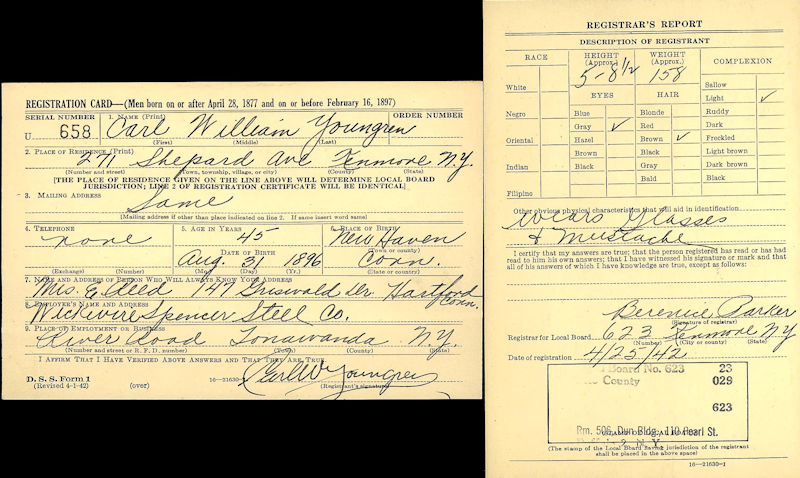 REGISTRATION CARD—(Men born on or after April 28, 1877 and on or before February 16, 1897)
SERIAL NUMBER 1. NAME (Print) ORDER NUMBER
U 658 Carl William Youngren
(First) (Middle) (Last)
2. PLACE OF RESIDENCE (Print)
271 Shepard Ave Kenmore N.Y.
(Number and street) (Town, township, village, or city) (County) (State)
[THE PLACE OF RESIDENCE GIVEN ON THE LINE ABOVE WILL DETERMINE LOCAL BOARD
JURISDICTION; LINE 2 OF REGISTRATION CERTIFICATE WILL BE IDENTICAL]
3. MAILING ADDRESS
Same
(Mailing address if other than place indicated on line 2. If same insert word same)
4. TELEPHONE 5. AGE IN YEARS 6. PLACE OF BIRTH
none 45 New Haven
DATE OF BIRTH (Town or county)
Aug. 31 1896 Conn.
(Exchange) (Number) (Mo.) (Day) (Yr.) (State or country)
7. NAME AND ADDRESS OF PERSON WHO WILL ALWAYS KNOW YOUR ADDRESS
Mrs. E. Reed 147 Griswald Dr. Hartford Conn.
8. EMPLOYER'S NAME AND ADDRESS
Wickwire Spencer Steel Co.
9. PLACE OF EMPLOYMENT OR BUSINESS
River Road Tonawanda N.Y.
(Number and street or R. F. D. number) (Town) (County) (State)
I AFFIRM THAT I HAVE VERIFIED ABOVE ANSWERS AND THAT THEY ARE TRUE.
D. S. S. Form 1
(Revised 4-1-42) (over) 16—21630-1 Carl W Youngren
(Registrant's signature)
REGISTRAR'S REPORT
DESCRIPTION OF REGISTRANT
RACE HEIGHT (Approx.) WEIGHT (Approx.) COMPLEXION
5-8 1/2 158
White Sallow
EYES HAIR Light ✓
Negro Blue Blonde Ruddy
Gray ✓ Red Dark
Oriental Hazel Brown ✓ Freckled
Brown Black Light brown
Indian Black Gray Dark brown
Bald Black
Filipino
Other obvious physical characteristics that will aid in identification
Wears Glasses
& Mustache
I certify that my answers are true; that the person registered has read or has had
read to him his own answers; that I have witnessed his signature or mark and that
all of his answers of which I have knowledge are true, except as follows:
Berenice Parker
(Signature of registrar)
Registrar for Local Board 623 Kenmore NY
(Number) (City or county) (State)
Date of registration 4/25/42
Board No. 623 23
County 029
623
Rm. 506, Dun Bldg., 110 Pearl St.
2, N.Y.
(The stamp of the Local Board having jurisdiction of the registrant
shall be placed in the above space)
16—21630-1